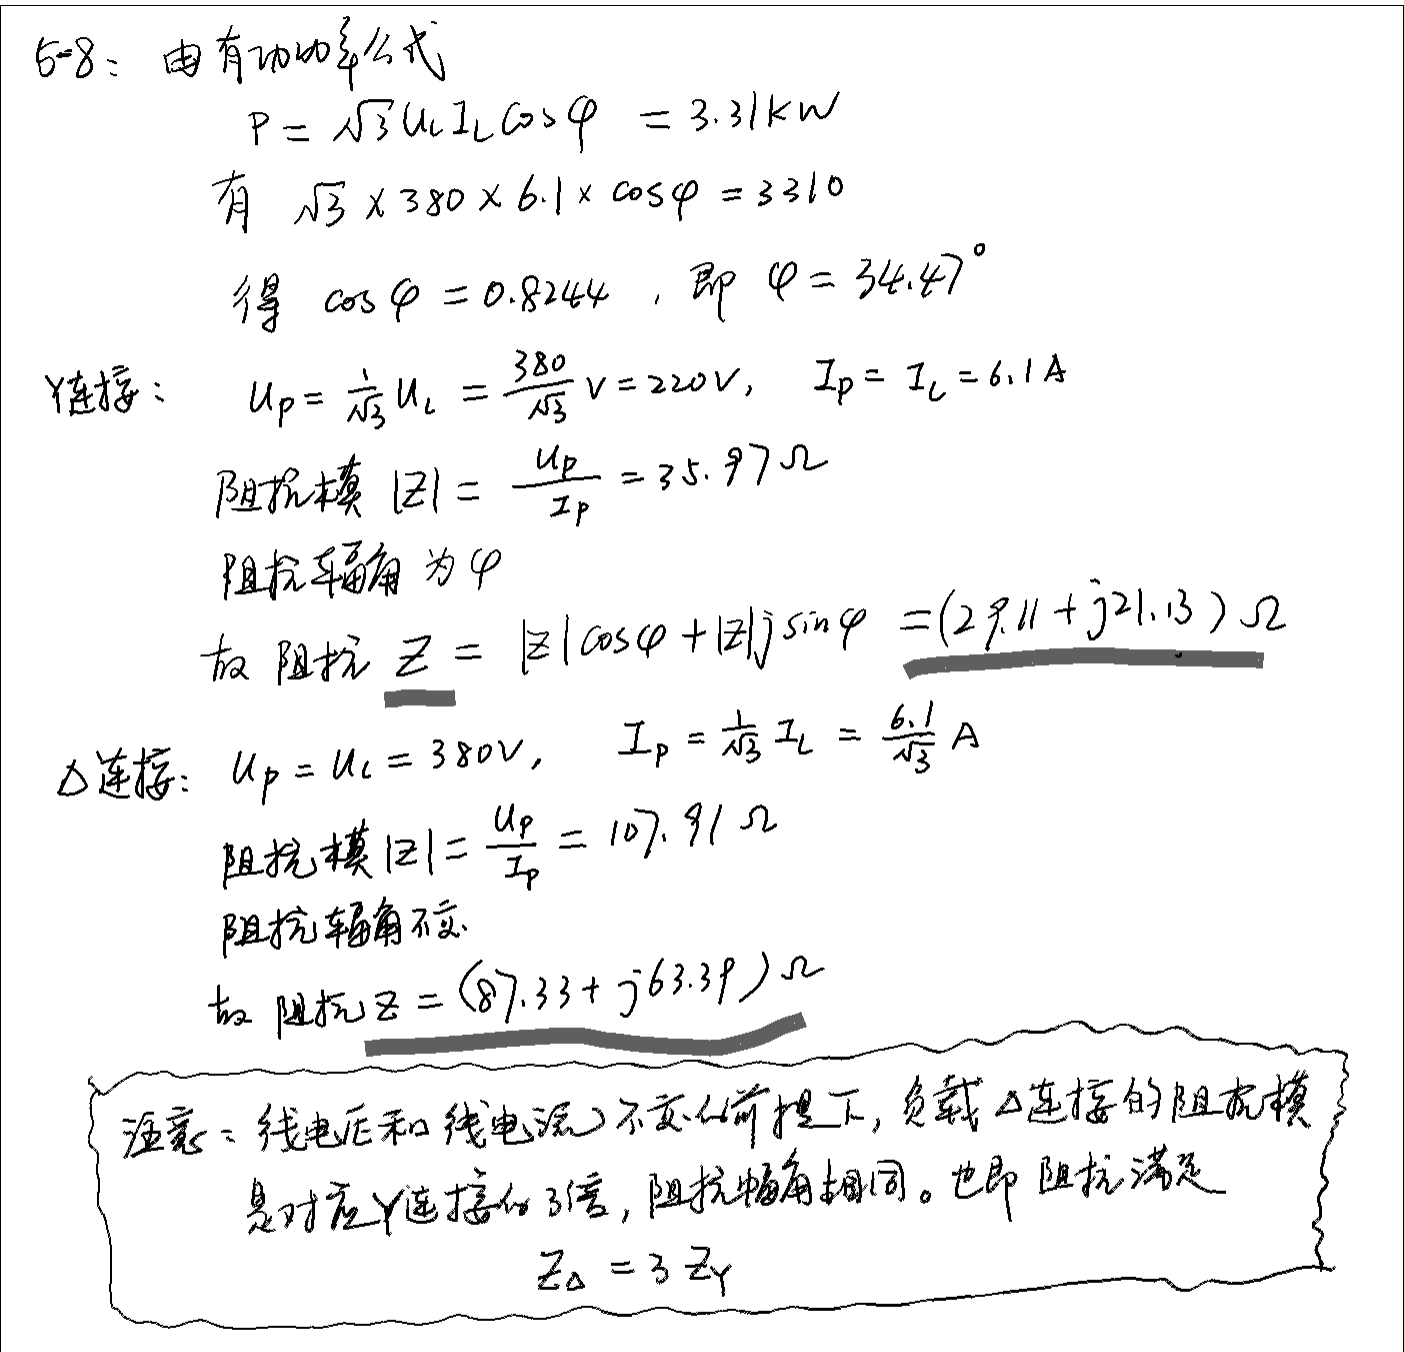 5-8: 由有功功率公式
P = √3 U_L I_L cosφ = 3.31kW
有 √3 × 380 × 6.1 × cosφ = 3310
得 cosφ = 0.8244 , 即 φ = 34.47°
Y连接: U_P = 1/√3 U_L = 380/√3 V = 220V, I_P = I_L = 6.1A
阻抗模 |Z| = U_P/I_P = 35.97Ω
阻抗辐角为φ
故阻抗 Z = |Z|cosφ + |Z|j sinφ = (29.11 + j21.13) Ω
Δ连接: U_P = U_L = 380V, I_P = 1/√3 I_L = 6.1/√3 A
阻抗模 |Z| = U_P/I_P = 107.91 Ω
阻抗辐角不变
故阻抗 Z = (87.33 + j63.39) Ω
注意: 线电压和线电流不变的前提下, 负载Δ连接的阻抗模
是对应Y连接的3倍, 阻抗幅角相同。也即阻抗满足
Z_Δ = 3 Z_Y